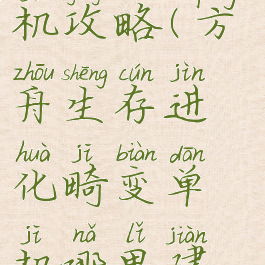 机攻略(方
zhōu shēng cún jìn
舟生存进
huà jī biàn dān
化畸变单
jī nǎ lǐ jiàn
机哪里建